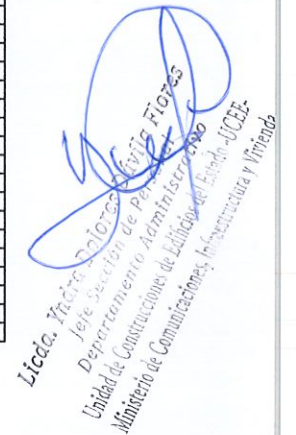 Licda. Yadira Dolores Dávila Flores
Jefe Sección de Personal
Departamento Administrativo
Unidad de Construcciones de Edificios del Estado -UCEE-
Ministerio de Comunicaciones, Infraestructura y Vivienda